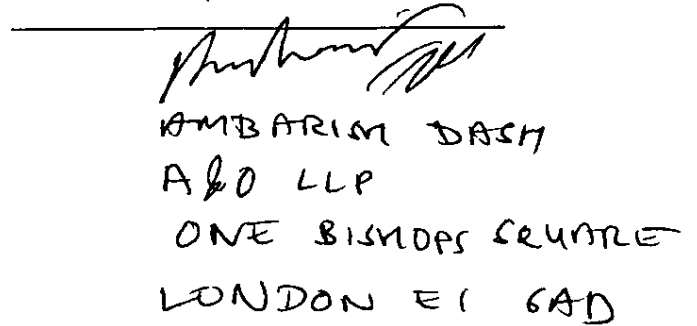 AMBARISH DASH
A&O LLP
ONE BISHOPS SQUARE
LONDON E1 6AD